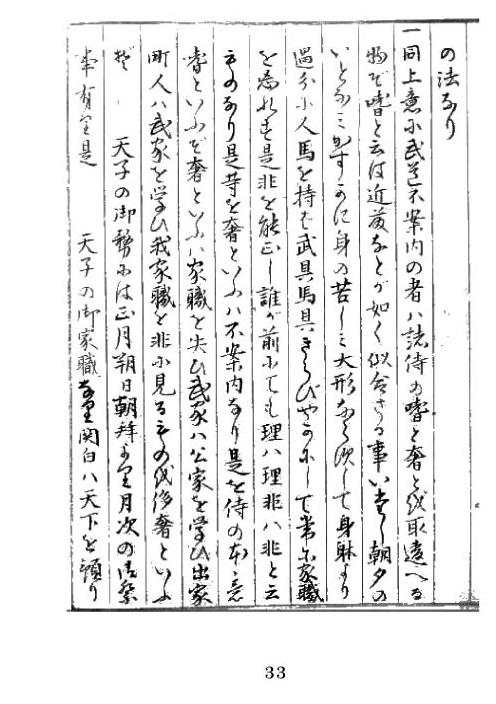 の法なり
一同上意に武道不案内の者ハ諸侍の嗜と奢と伐取違へる
物ぞ嗜と云は近藤などが如く似合さる事いたし朝夕の
いとなミかすかに身の苦しミ大形ならずして身躰より
過分に人馬を持せ武具馬具きらびやかにして常に家職
を忘れず是非を能正し誰が前にても理ハ理非ハ非と云
ものなり是等を奢といふハ不案内なり是を侍の本意
嗜といふぞ奢といふハ家職を失ひ武家ハ公家を学ひ出家
町人ハ武家を学ひ我家職を非に見るもの伐侈奢といふ
ぞ 天子の御勤には正月朔日朝拝より月次の御祭
事有是 天子の御家職なり関白ハ天下を預り
33